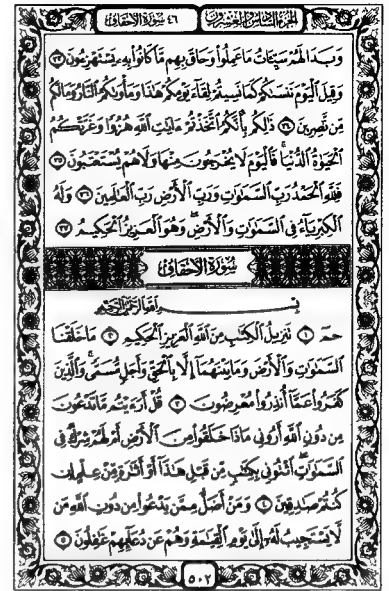 الجزء السادس والعشرون ٤٦ سورة الأحقاف
وَبَدَا لَهُمْ سَيِّئَاتُ مَا عَمِلُوا وَحَاقَ بِهِم مَّا كَانُوا بِهِ يَسْتَهْزِءُونَ ٣٣
وَقِيلَ الْيَوْمَ نَنسَىٰكُمْ كَمَا نَسِيتُمْ لِقَاءَ يَوْمِكُمْ هَٰذَا وَمَأْوَىٰكُمُ النَّارُ وَمَا لَكُم
مِّن نَّٰصِرِينَ ٣٤ ذَٰلِكُم بِأَنَّكُمُ اتَّخَذْتُمْ ءَايَٰتِ اللَّهِ هُزُوًا وَغَرَّتْكُمُ
الْحَيَوٰةُ الدُّنْيَا ۚ فَالْيَوْمَ لَا يُخْرَجُونَ مِنْهَا وَلَا هُمْ يُسْتَعْتَبُونَ ٣٥
فَلِلَّهِ الْحَمْدُ رَبِّ السَّمَٰوَٰتِ وَرَبِّ الْأَرْضِ رَبِّ الْعَٰلَمِينَ ٣٦ وَلَهُ
الْكِبْرِيَاءُ فِي السَّمَٰوَٰتِ وَالْأَرْضِ ۖ وَهُوَ الْعَزِيزُ الْحَكِيمُ ٣٧
سورة الأحقاف
بِسْمِ اللَّهِ الرَّحْمَٰنِ الرَّحِيمِ
حمٓ ١ تَنزِيلُ الْكِتَٰبِ مِنَ اللَّهِ الْعَزِيزِ الْحَكِيمِ ٢ مَا خَلَقْنَا
السَّمَٰوَٰتِ وَالْأَرْضَ وَمَا بَيْنَهُمَا إِلَّا بِالْحَقِّ وَأَجَلٍ مُّسَمًّى ۚ وَالَّذِينَ
كَفَرُوا عَمَّا أُنذِرُوا مُعْرِضُونَ ٣ قُلْ أَرَءَيْتُم مَّا تَدْعُونَ
مِن دُونِ اللَّهِ أَرُونِي مَاذَا خَلَقُوا مِنَ الْأَرْضِ أَمْ لَهُمْ شِرْكٌ فِي
السَّمَٰوَٰتِ ۖ ائْتُونِي بِكِتَٰبٍ مِّن قَبْلِ هَٰذَا أَوْ أَثَٰرَةٍ مِّنْ عِلْمٍ إِن
كُنتُمْ صَٰدِقِينَ ٤ وَمَنْ أَضَلُّ مِمَّن يَدْعُوا مِن دُونِ اللَّهِ مَن
لَّا يَسْتَجِيبُ لَهُ إِلَىٰ يَوْمِ الْقِيَٰمَةِ وَهُمْ عَن دُعَائِهِمْ غَٰفِلُونَ ٥
٥٠٢